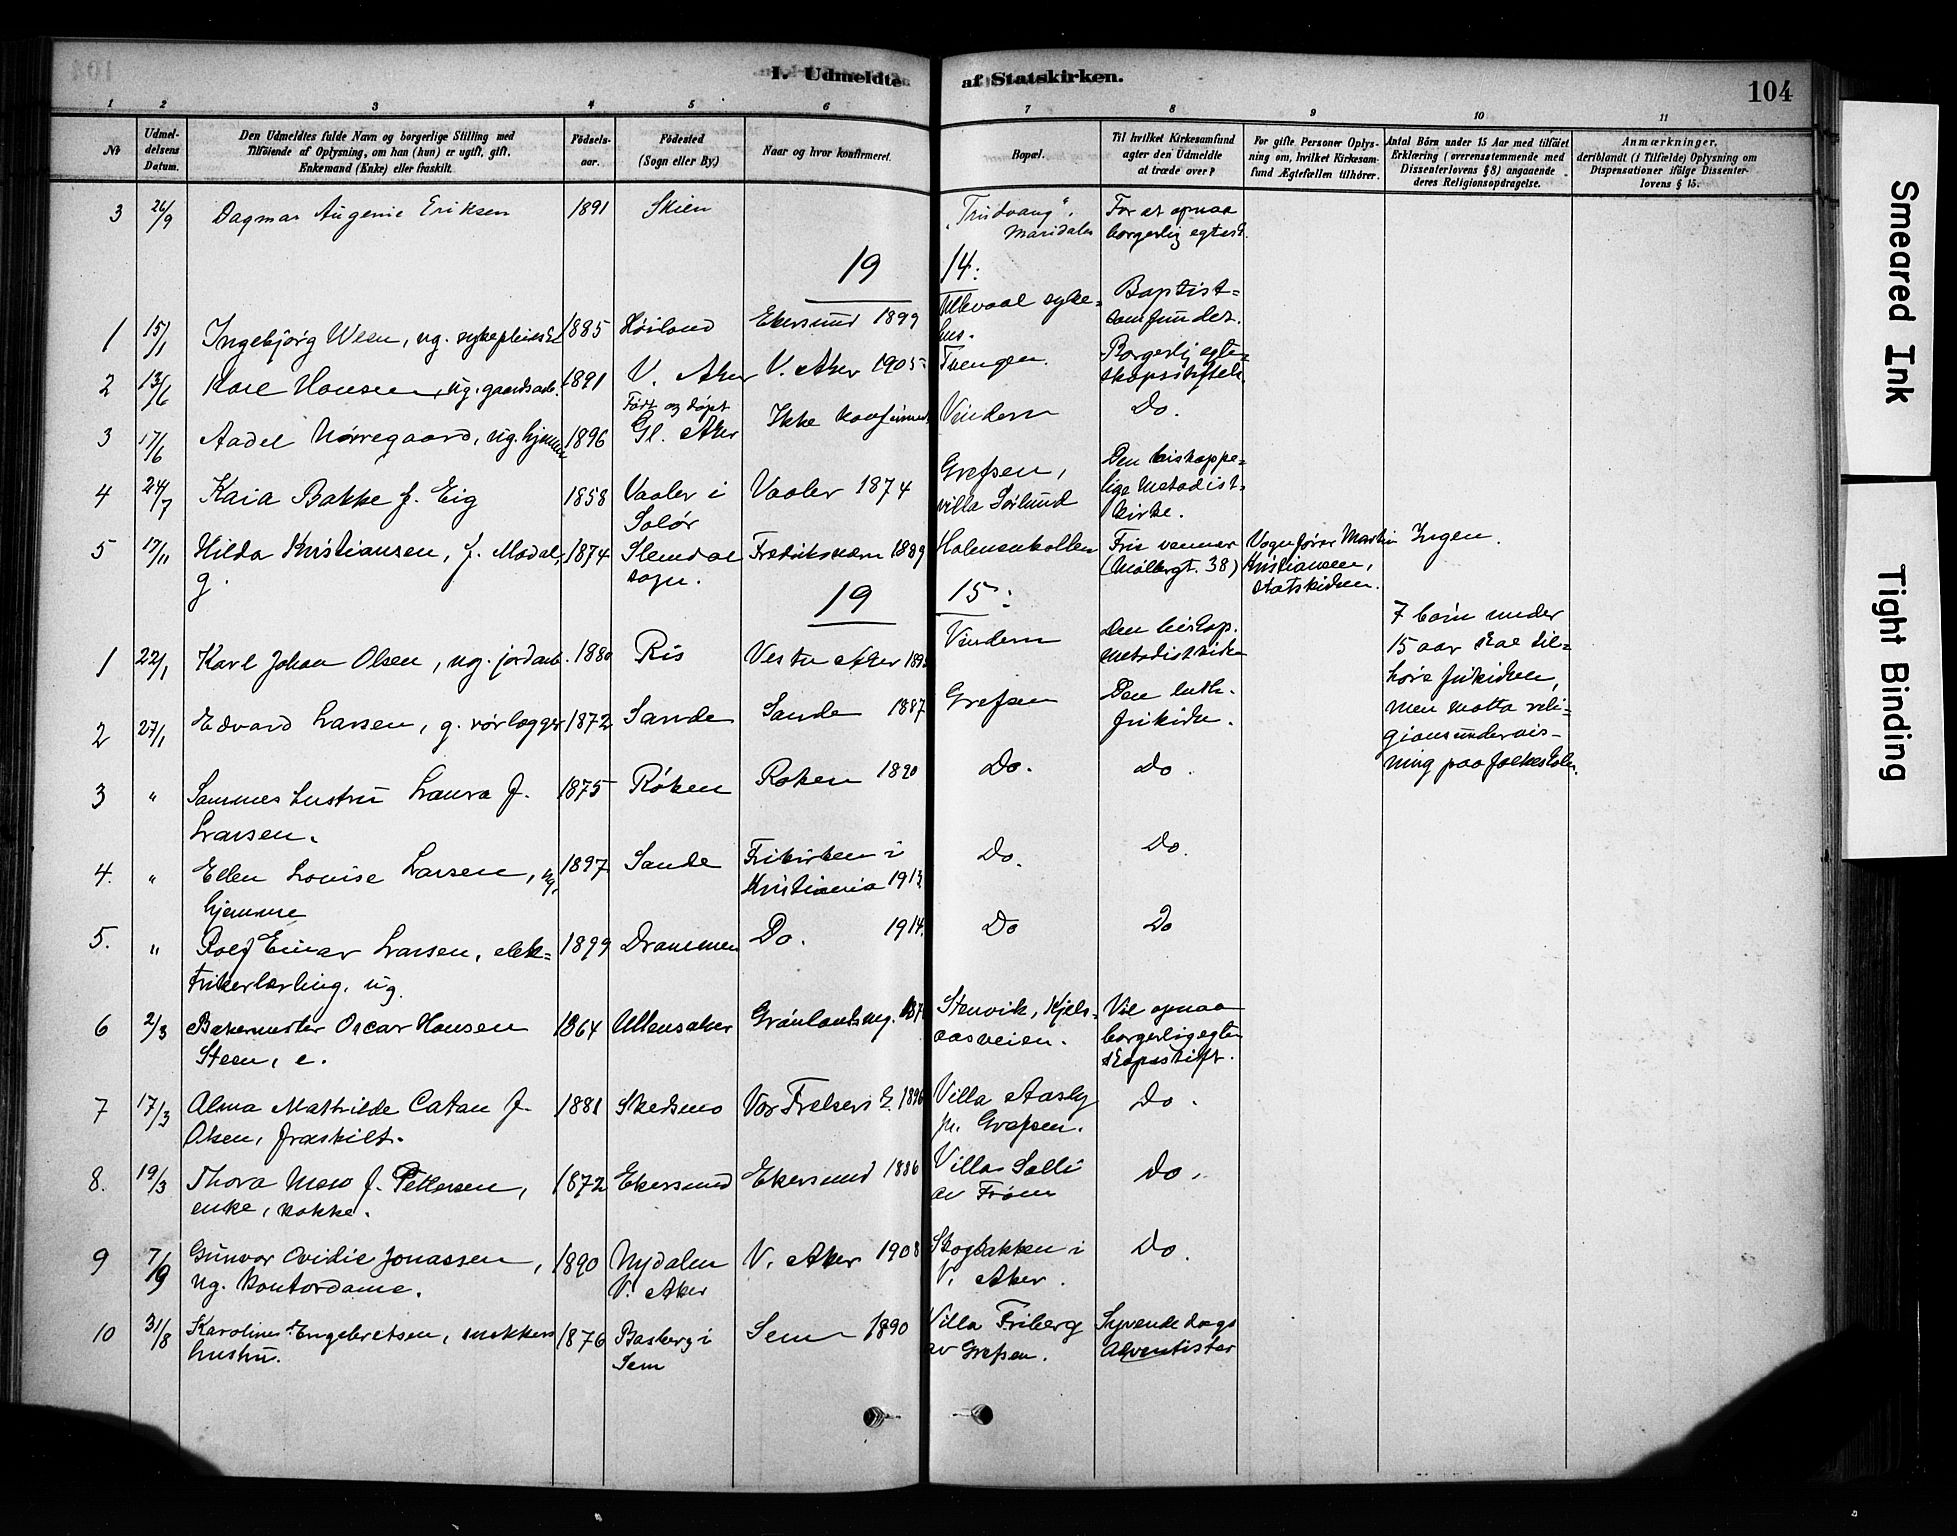 I. Udmeldte af Statskirken.
104
1 2 3 4 5 6 7 8 9 10 11
№
Udmeldelsens Datum.
Den Udmeldtes fulde Navn og borgerlige Stilling med
Tilføiende af Oplysning, om han (hun) er ugift, gift,
Enkemand (Enke) eller fraskilt.
Fødselsaar.
Fødested
(Sogn eller By.)
Naar og hvor konfirmeret.
Bopæl.
Til hvilket Kirkesamfund
agter den Udmeldte
at træde over?
For gifte Personer Oplys-
ning om, hvilket Kirkesam-
fund Ægtefællen tilhører.
Antal Børn under 15 Aar med tilføiet
Erklæring (overensstemmende med
Dissenterlovens § 8) angaaende
deres Religionsopdragelse.
Anmærkninger,
deriblandt (i Tilfælde) Oplysning om
Dispensationer ifølge Dissenter-
lovens § 15.
3 26/9 Dagmar Augenie Eriksen 1891 Skien Maridalen For at opnaa
borgerlig egtesk.
19 14:
1 15/1 Ingebjørg ug. 1885 Høiland Ekersund 1899 Ullevaal syke-
hus. Baptist-
samfundet.
2 13/6 Kare Hansen, ug. gaardsarb. 1891 V. Aker V. Aker 1905 Tvengen. Borgerlig egte-
skapsstiftels.
3 17/6 Aadel Nørregaard, ug. hjemme 1896 Født og døpt
Gl. Aker Ikke konfirmert Vindern Do.
4 24/7 Kaia Bakke f. Eig 1858 Vaaler i
Solør Vaaler 1874 Grefsen,
villa Sørlund Den biskoppe-
lige Metodist-
kirke.
5 17/11 Hilda Kristiansen, f. Modal,
g. 1874 Slemdal
sogn. Fredriksværn 1889 Holmenkollen Frie venner
(Møllergt. 38) Vognfører Martin
Kristiansen,
statskirken. Ingen.
19 15:
1 22/1 Karl Johan Olsen, ug. jordarb. 1880 Ris Vestre Aker Vindern Den biskop.
metodistkirke
2 27/1 Edvard Larsen, g. rørlægger 1872 Sande Sande 1887 Grefsen Den luth.
frikirke. 7 børn under
15 aar skal til-
høre frikirken,
men motta reli-
gionsundervis-
ning paa folkeskolen.
3 " Sammes hustru Laura f.
Larsen. 1875 Røken Røken 1890 Do. Do.
4. " Ellen Louise Larsen, ug.
hjemme 1897 Sande Frikirken i
Kristiania 1913 Do. Do.
5. " Rolf Einar Larsen, elek-
trikerlærling, ug. 1899 Drammen Do. 1914. Do Do
6 2/3 Bakermester Oscar Hansen
Steen, e. 1864 Ullensaker Grønlands mg. Stenvik, Kjels-
aasveien. Vil opnaa
borgerlig egte-
skapsstift.
7 17/3 Alma Mathilde Catan f.
Olsen, fraskilt. 1881 Skedsmo Vor Frelsers k. 1896 Villa Aasly
pr. Grefsen. Do.
8. 19/3 Thora f. Pettersen,
enke, kokke. 1872 Ekersund Ekersund 1886 Villa Solli
av Frøen Do.
9 7/9 Gunvor Ovidie Jonassen,
ug. kontordame. 1890 Nydalen
V. Aker V. Aker 1908 Skogbakken i
V. Aker. Do.
10 31/8 Karoline Engebretsen, snekkers
hustru. 1876 Basberg i
Sem Sem 1890 Villa Friberg
av Grefsen. Syvende dags
adventister
Smeared Ink
Tight Binding